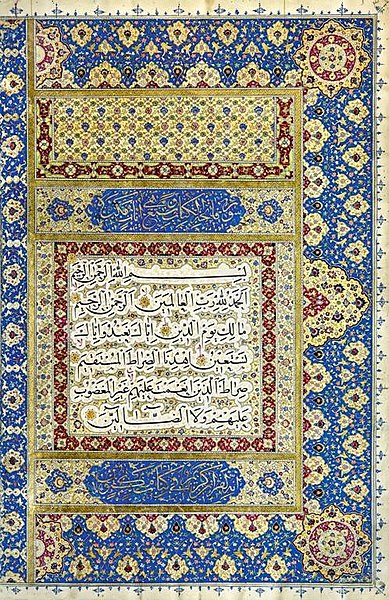 بسم الله الرحمن الرحيم
الحمد لله رب العالمين الرحمن الرحيم
مالك يوم الدين إياك نعبد وإياك
نستعين اهدنا الصراط المستقيم
صراط الذين أنعمت عليهم غير المغضوب
عليهم ولا الضالين